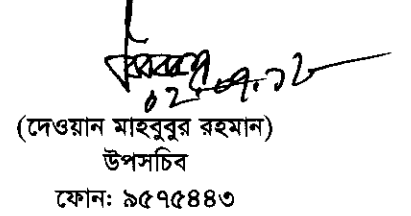 ০২.০৭.১৮
(দেওয়ান মাহবুবুর রহমান)
উপসচিব
ফোন: ৯৫৭৫৪৪৩